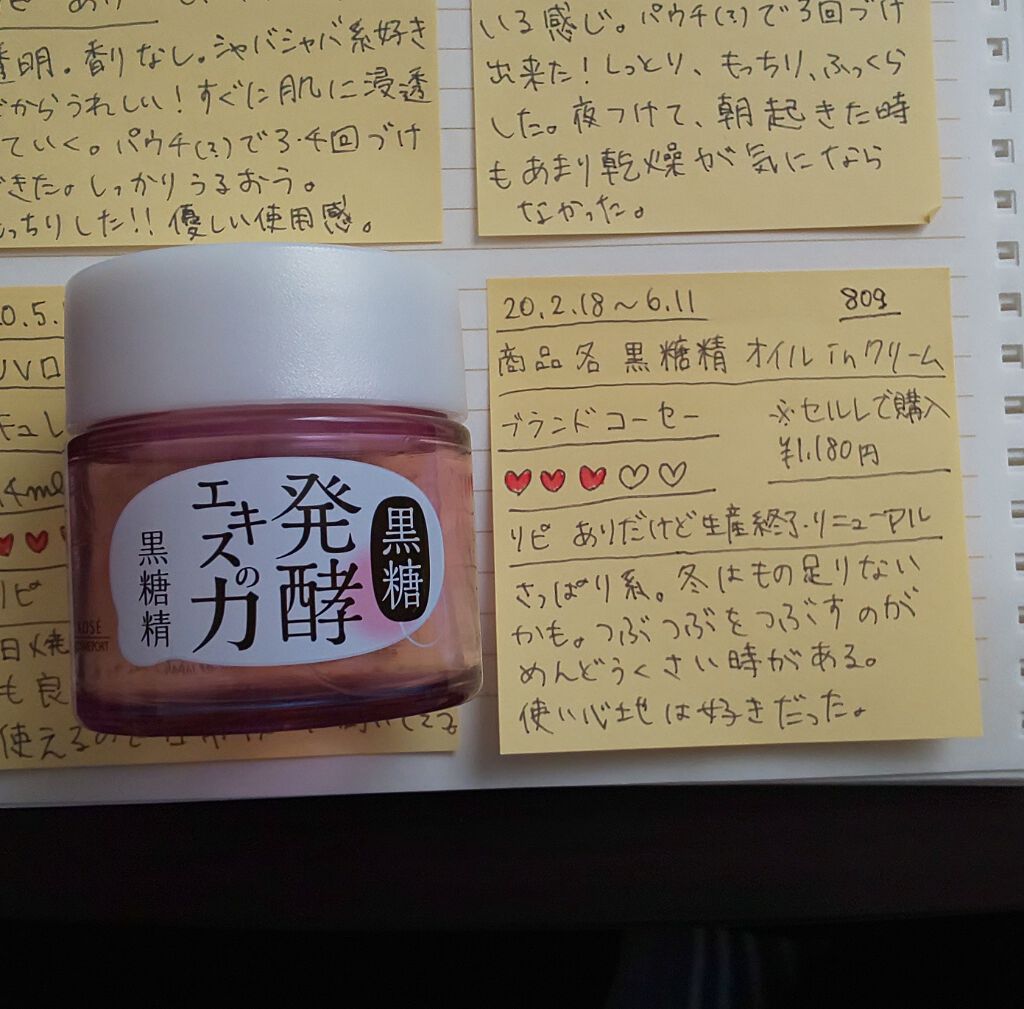 あり
透明。香りなし。シャバシャバ系好き
だからうれしい!すぐに肌に浸透
していく。パウチ(ミ)で3・4回づけ
できた。しっかりうるおう。
もっちりした!!優しい使用感。
いる感じ。パウチ(ミ)で3回づけ
出来た!しっとり、もっちり、ふっくら
した。夜つけて、朝起きた時
もあまり乾燥が気になら
なかった。
20.5.
UVロ
キュレ
ml
リピ
日焼
も良
使えるの
黒糖
発酵
エキスの力
黒糖精
KOSÉ
COSMEPORT
20.2.18~6.11
80g
商品名 黒糖精 オイルinクリーム
ブランド コーセー
※セルレで購入
¥1.180円
リピ ありだけど生産終了・リニューアル
さっぱり系。冬はもの足りない
かも。つぶつぶをつぶすのが
めんどうくさい時がある。
使い心地は好きだった。